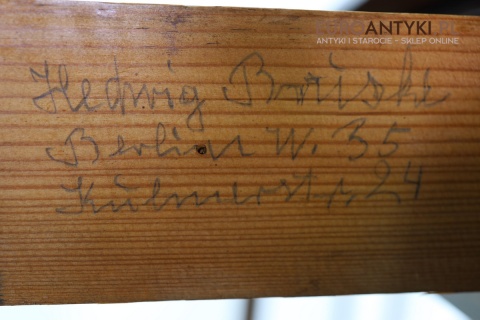 ANTYKI
ANTYKI I STAROCIE - SKLEP ONLINE
Hedwig
Berlin W. 35
Kulmerstr. 24